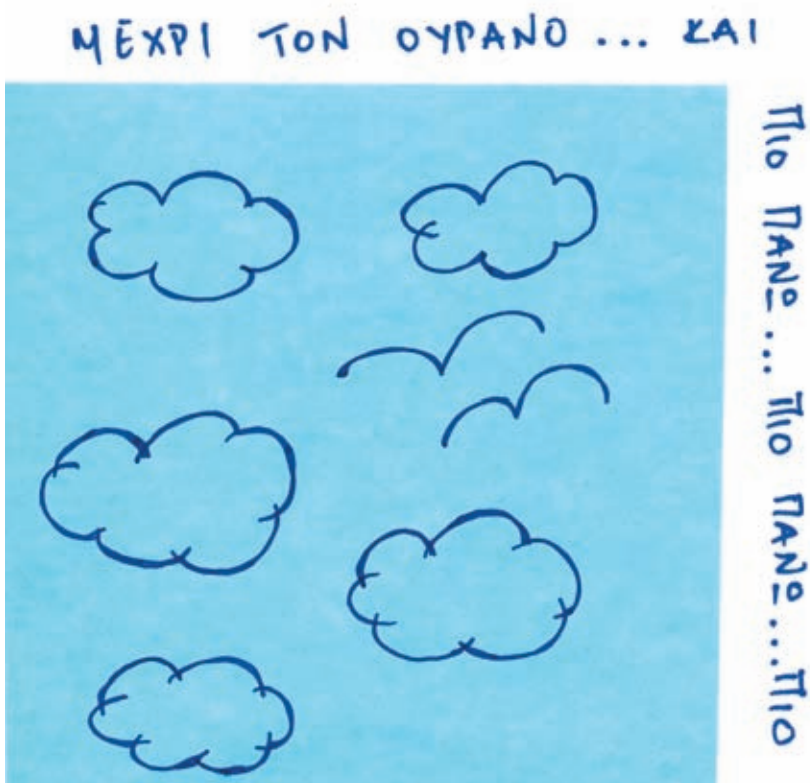 ΜΕΧΡΙ ΤΟΝ ΟΥΡΑΝΟ... ΚΑΙ
ΠΙΟ ΠΑΝΩ... ΠΙΟ ΠΑΝΩ....ΠΙΟ